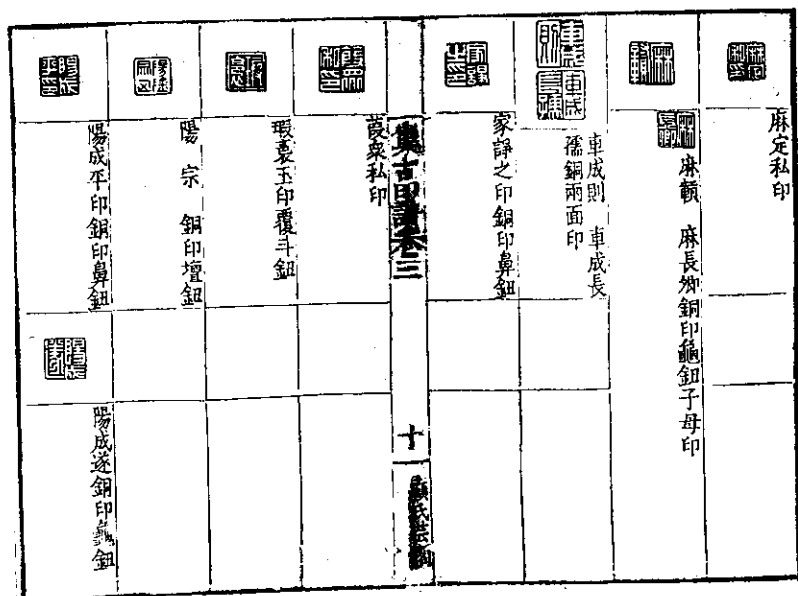 麻定私印
麻䡟 麻長卿銅印龜鈕子母印
車成則 車成長
孺銅兩面印
家諍之印銅印鼻鈕
集古印譜卷三
十一
顧氏芸閣
葭衆私印
瑕裛玉印覆斗鈕
陽宗 銅印壇鈕
陽成平印銅印鼻鈕
陽成遂銅印龜鈕